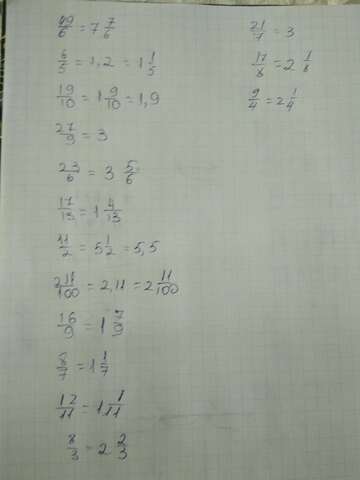 49/6 = 7 7/6
6/5 = 1,2 = 1 1/5
19/10 = 1 9/10 = 1,9
27/9 = 3
23/6 = 3 5/6
17/13 = 1 4/13
11/2 = 5 1/2 = 5,5
2 11/100 = 2,11 = 2 11/100
16/9 = 1 7/9
8/7 = 1 1/7
12/11 = 1 1/11
8/3 = 2 2/3
21/7 = 3
17/8 = 2 1/8
9/4 = 2 1/4